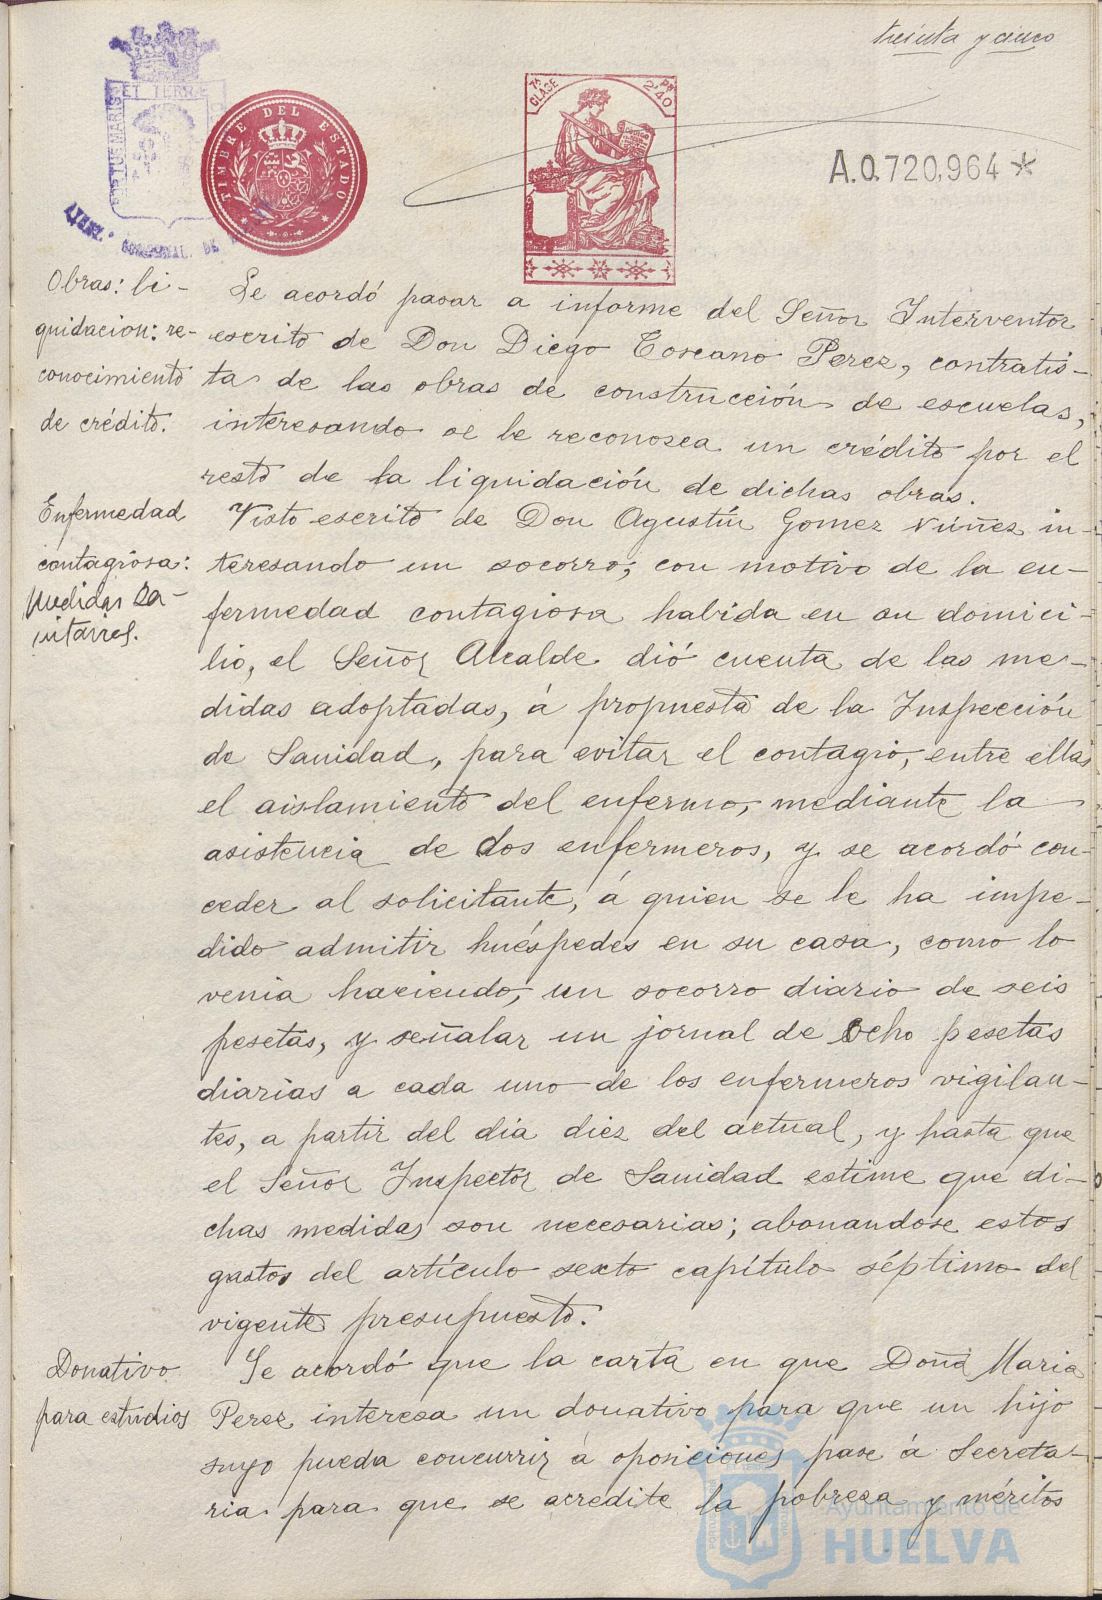 treinta y cinco
PORTUS MARIS ET TERRÆ
AYUNT.
DE
TIMBRE DEL ESTADO
7ª CLASE
PTS 2'40
A.0.720,964 *
Obras: li-
quidacion: re-
conocimiento
de crédito.
Se acordó pasar a informe del Señor Interventor
escrito de Don Diego Toscano Perez, contratis-
ta de las obras de construcción de escuelas,
interesando se le reconosca un crédito por el
resto de la liquidación de dichas obras.
Enfermedad
contagiosa:
Medidas sa-
nitarias.
Visto escrito de Don Agustín Gomez Núñez in-
teresando un socorro, con motivo de la en-
fermedad contagiosa habida en su domici-
lio, el Señor Alcalde dió cuenta de las me-
didas adoptadas, á propuesta de la Inspección
de Sanidad, para evitar el contagio, entre ellas
el aislamiento del enfermo, mediante la
asistencia de dos enfermeros, y se acordó con-
ceder al solicitante, á quien se le ha impe-
dido admitir huéspedes en su casa, como lo
venia haciendo, un socorro diario de seis
pesetas, y señalar un jornal de ocho pesetas
diarias a cada uno de los enfermeros vigilan-
tes, a partir del dia diez del actual, y hasta que
el Señor Inspector de Sanidad estime que di-
chas medidas son necesarias; abonandose estos
gastos del artículo sexto capítulo séptimo del
vigente presupuesto.
Donativo
para estudios
Se acordó que la carta en que Doña Maria
Perez interesa un donativo para que un hijo
suyo pueda concurrir á oposiciones pase á Secreta-
ria para que se acredite la pobresa y méritos
Ayuntamiento de
HUELVA